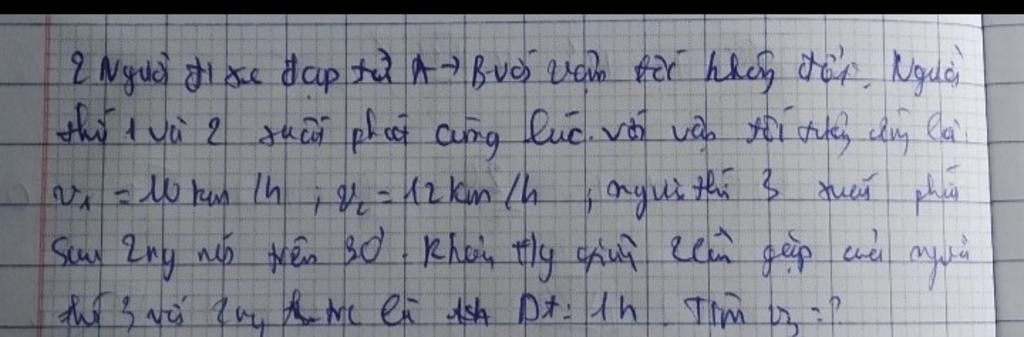 2 Người đi xe đạp từ A → B với vận tốc không đổi. Người
thứ 1 và 2 xuất phát cùng lúc. với vận tốc tương ứng là
v₁ = 10 km/h ; v₂ = 12 km/h ; người thứ 3 xuất phát
Sau 2 ng nói trên 30'. Khoảng t/g giữa 2 lần gặp của người
thứ 3 với 2 ng là Dt = 1h Tìm v₃ = ?